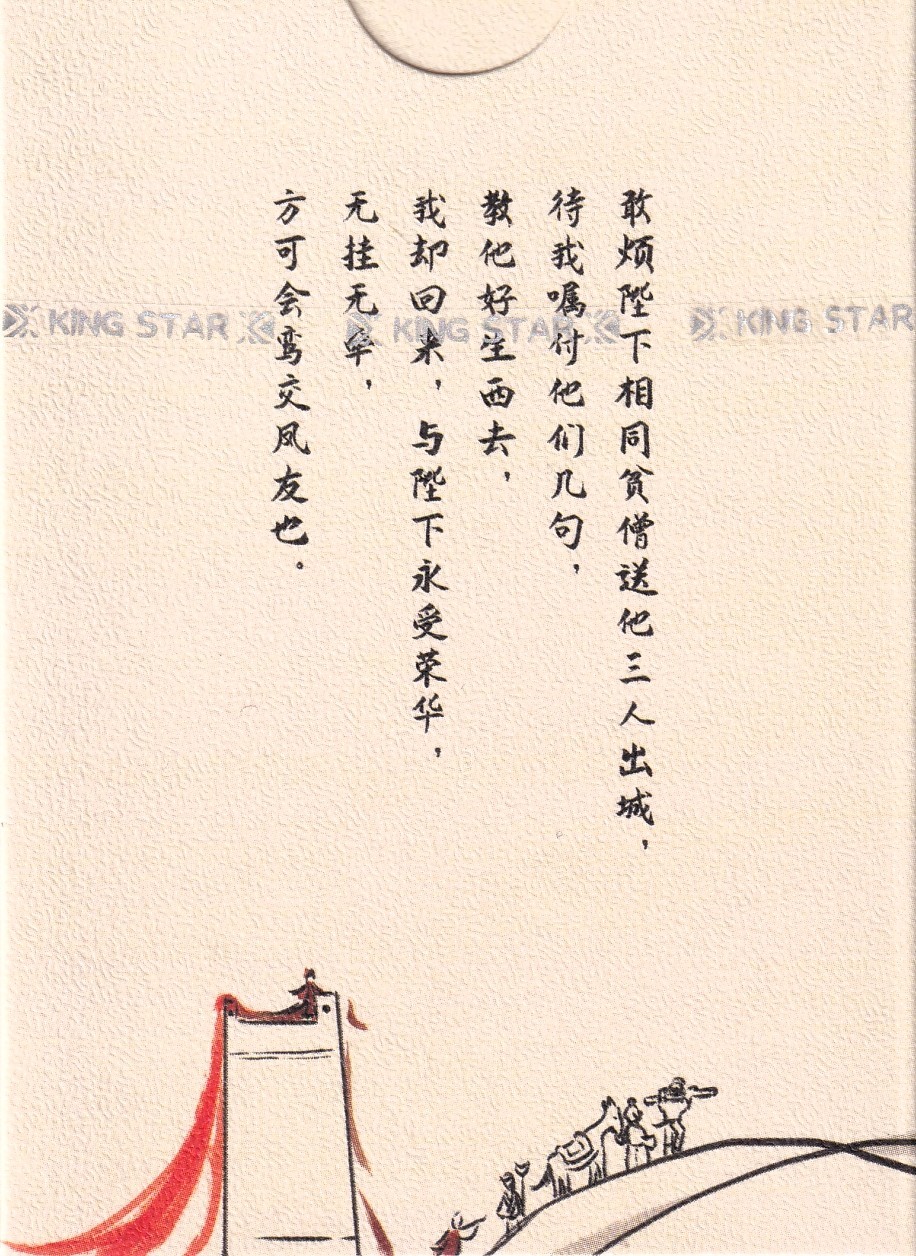 敢烦陛下相同贫僧送他三人出城，
待我嘱付他们几句，
教他好生西去，
我却回来，与陛下永受荣华，
无挂无牵，
方可会鸾交凤友也。
KING STAR KING STAR KING STAR